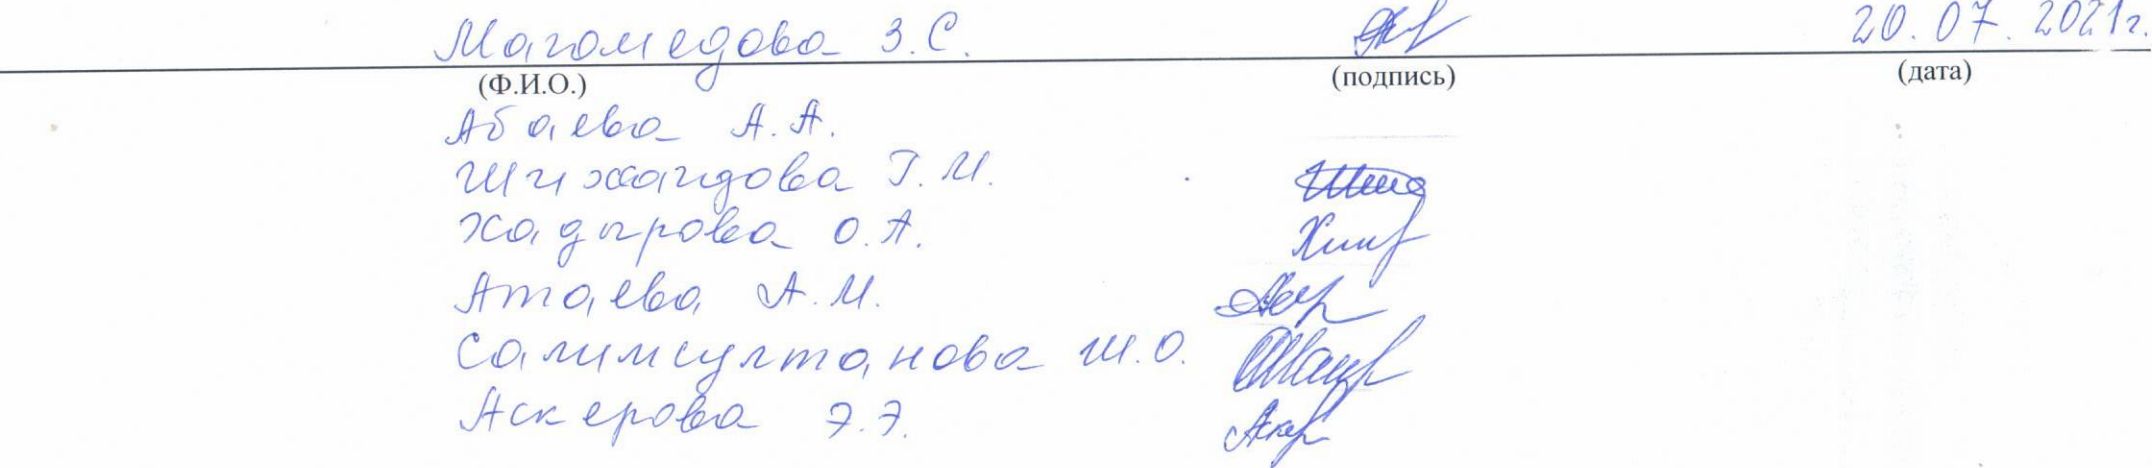 Магомедова З.С. 20.07.2021г.
(Ф.И.О.) (подпись) (дата)
Абаева А.А.
Шихаидова Г.М.
Хадырова О.А.
Атаева А.М.
Салимсултанова Ш.О.
Аскерова Э.Э.